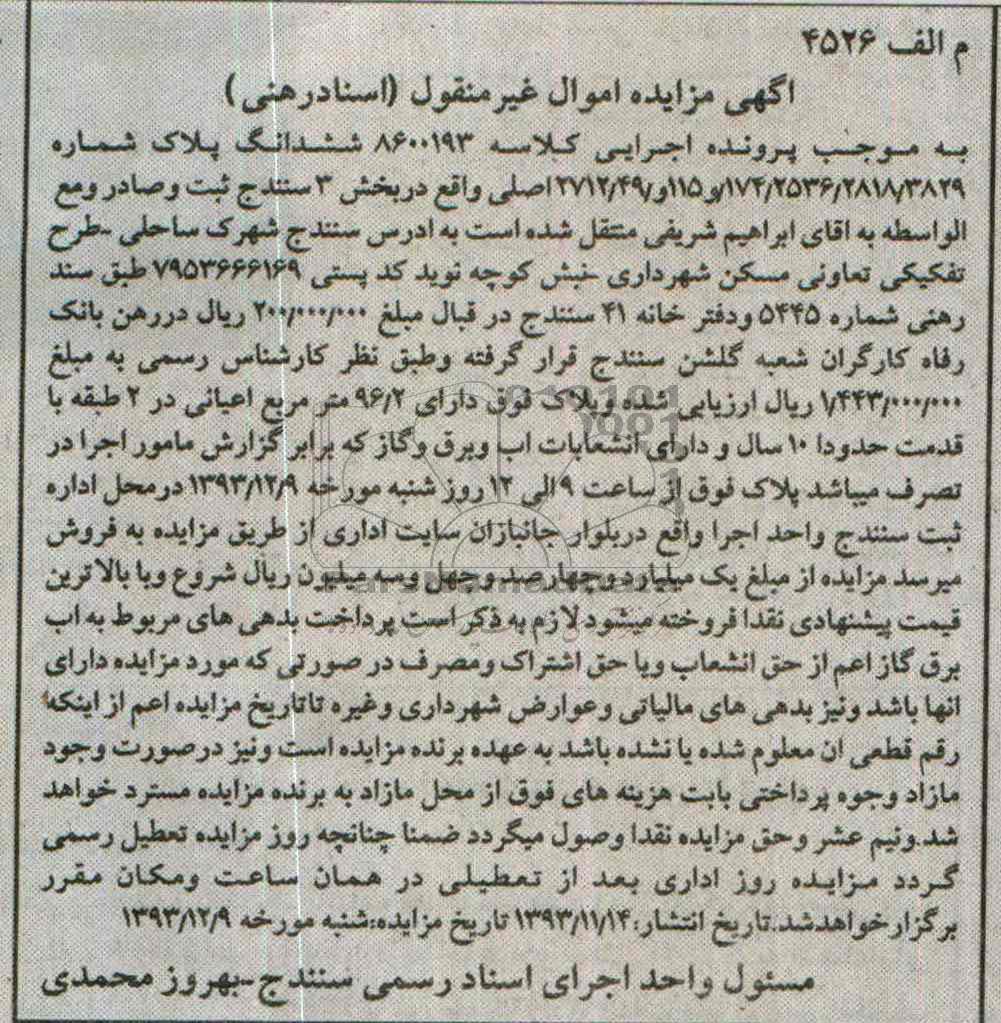 م الف ۴۵۲۶
اگهی مزایده اموال غیرمنقول (اسنادرهنی)
به موجب پرونده اجرایی کلاسه ۸۶۰۰۱۹۳ ششدانگ پلاک شماره
۱۷۴/۲۵۳۶/۲۸۱۸/۳۸۲۹/و۱۱۵و۲۷۱۲/۴۹/اصلی واقع دربخش ۳ سنندج ثبت وصادر ومع
الواسطه به اقای ابراهیم شریفی منتقل شده است به ادرس سنندج شهرک ساحلی -طرح
تفکیکی تعاونی مسکن شهرداری -نبش کوچه نوید کد پستی ۷۹۵۳۶۶۶۱۶۹ طبق سند
رهنی شماره ۵۴۴۵ ودفتر خانه ۴۱ سنندج در قبال مبلغ ۲۰۰/۰۰۰/۰۰۰ ریال دررهن بانک
رفاه کارگران شعبه گلشن سنندج قرار گرفته وطبق نظر کارشناس رسمی به مبلغ
۱/۴۴۳/۰۰۰/۰۰۰ ریال ارزیابی شده وپلاک فوق دارای ۹۶/۲ متر مربع اعیانی در ۲ طبقه با
قدمت حدودا ۱۰ سال و دارای انشعابات اب وبرق وگاز که برابر گزارش مامور اجرا در
تصرف میباشد پلاک فوق از ساعت ۹ الی ۱۲ روز شنبه مورخه ۱۳۹۳/۱۲/۹ درمحل اداره
ثبت سنندج واحد اجرا واقع دربلوار جانبازان سایت اداری از طریق مزایده به فروش
میرسد مزایده از مبلغ یک میلیارد وچهارصد وچهل وسه میلیون ریال شروع وبا بالا ترین
قیمت پیشنهادی نقدا فروخته میشود لازم به ذکر است پرداخت بدهی های مربوط به اب
برق گاز اعم از حق انشعاب ویا حق اشتراک ومصرف در صورتی که مورد مزایده دارای
انها باشد ونیز بدهی های مالیاتی وعوارض شهرداری وغیره تاتاریخ مزایده اعم از اینکه
رقم قطعی ان معلوم شده یا نشده باشد به عهده برنده مزایده است ونیز درصورت وجود
مازاد وجوه پرداختی بابت هزینه های فوق از محل مازاد به برنده مزایده مسترد خواهد
شد.ونیم عشر وحق مزایده نقدا وصول میگردد ضمنا چنانچه روز مزایده تعطیل رسمی
گردد مزایده روز اداری بعد از تعطیلی در همان ساعت ومکان مقرر
برگزارخواهدشد.تاریخ انتشار:۱۳۹۳/۱۱/۱۴ تاریخ مزایده:شنبه مورخه ۱۳۹۳/۱۲/۹
مسئول واحد اجرای اسناد رسمی سنندج-بهروز محمدی